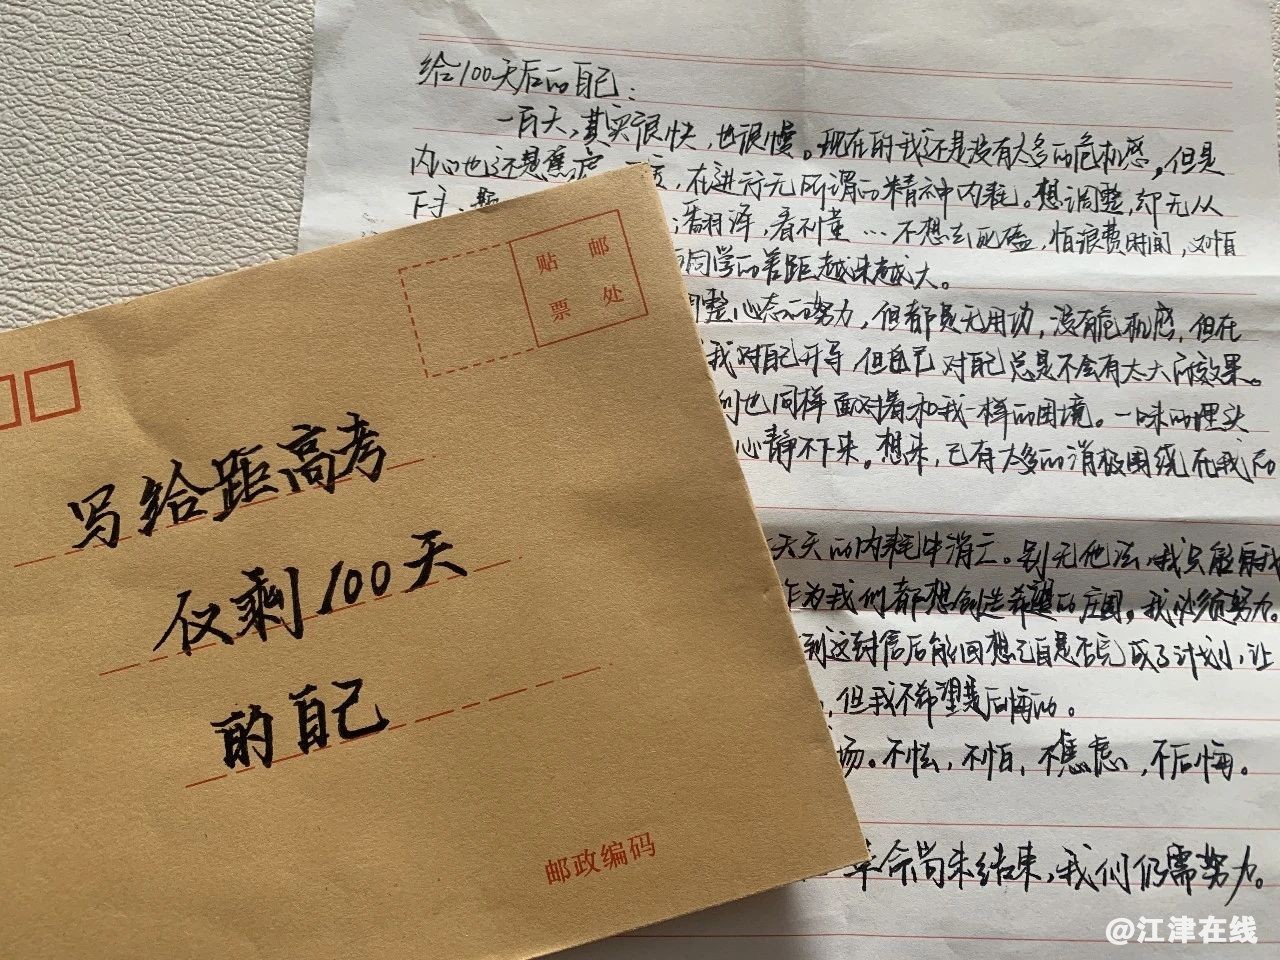 给100天后的自己:
一百天,其实很快,也很慢。现在的我还是没有太多的危机感,但是
内心也还是焦虑 在进行无所谓的精神内耗。想调整,却无从
下手、 看不懂…不想去 怕浪费时间,又怕
同学的差距越来越大。
整心态的努力,但都是无用功,没有危机感,但在
我对自己开导,但自己对自己总是不会有太大的效果。
们也同样面对着和我一样的困境。一味的埋头
心静不下来。想来,已有太多的消极围绕在我的
天天的内耗中消亡。别无他法,我只能用我
作为我们都想创造希望的 我必须努力。
到这封信后能回想 自己是否完成了计划,让
但我不希望是后悔的。
场。不怯,不怕,不焦虑,不后悔。
革命尚未结束,我们仍需努力。
贴 邮
票 处
写给距高考
仅剩100天
的自己
邮政编码
@江津在线